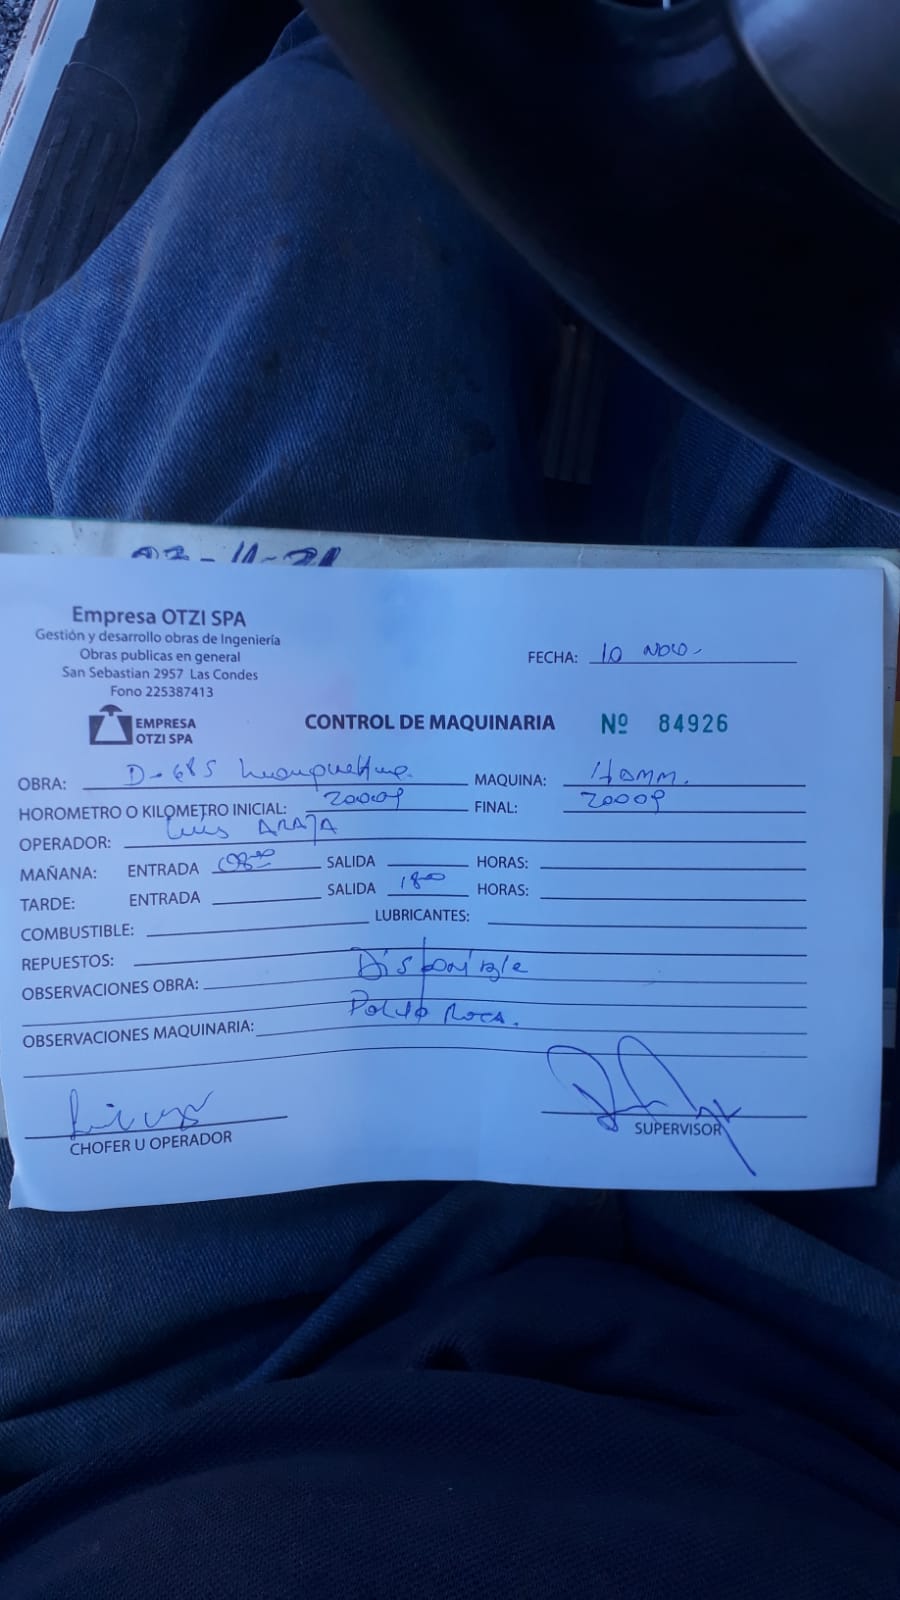 Empresa OTZI SPA
Gestión y desarrollo obras de Ingeniería
Obras publicas en general
San Sebastian 2957 Las Condes
Fono 225387413
EMPRESA
OTZI SPA
FECHA: 10 NOV.
CONTROL DE MAQUINARIA Nº 84926
OBRA: D-685 MAQUINA: HAMM.
HOROMETRO O KILOMETRO INICIAL: 20009 FINAL: 20009
OPERADOR: Luis ARAYA
MAÑANA: ENTRADA 08:00 SALIDA HORAS:
TARDE: ENTRADA SALIDA 18:00 HORAS:
COMBUSTIBLE: LUBRICANTES:
REPUESTOS:
OBSERVACIONES OBRA: Disponible
OBSERVACIONES MAQUINARIA: ROCA.
CHOFER U OPERADOR
SUPERVISOR